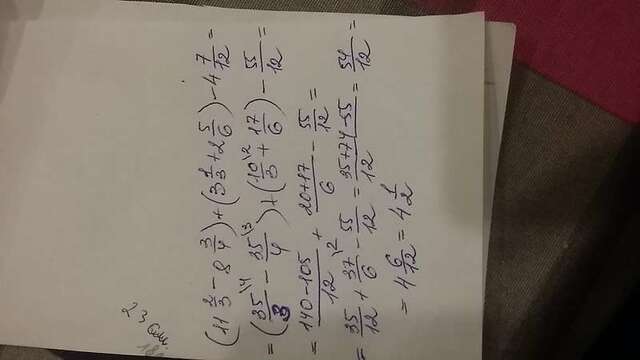 (11 2/3 - 8 3/4) + (3 1/3 + 2 5/6) - 4 7/12 =
= (35/3 \4 - 35/4 \3) + (10/3 \2 + 17/6) - 55/12 =
= 140-105/12 + 20+17/6 - 55/12 =
= 35/12 + 37/6 \2 - 55/12 = 35+74-55/12 = 54/12 =
= 4 6/12 = 4 1/2